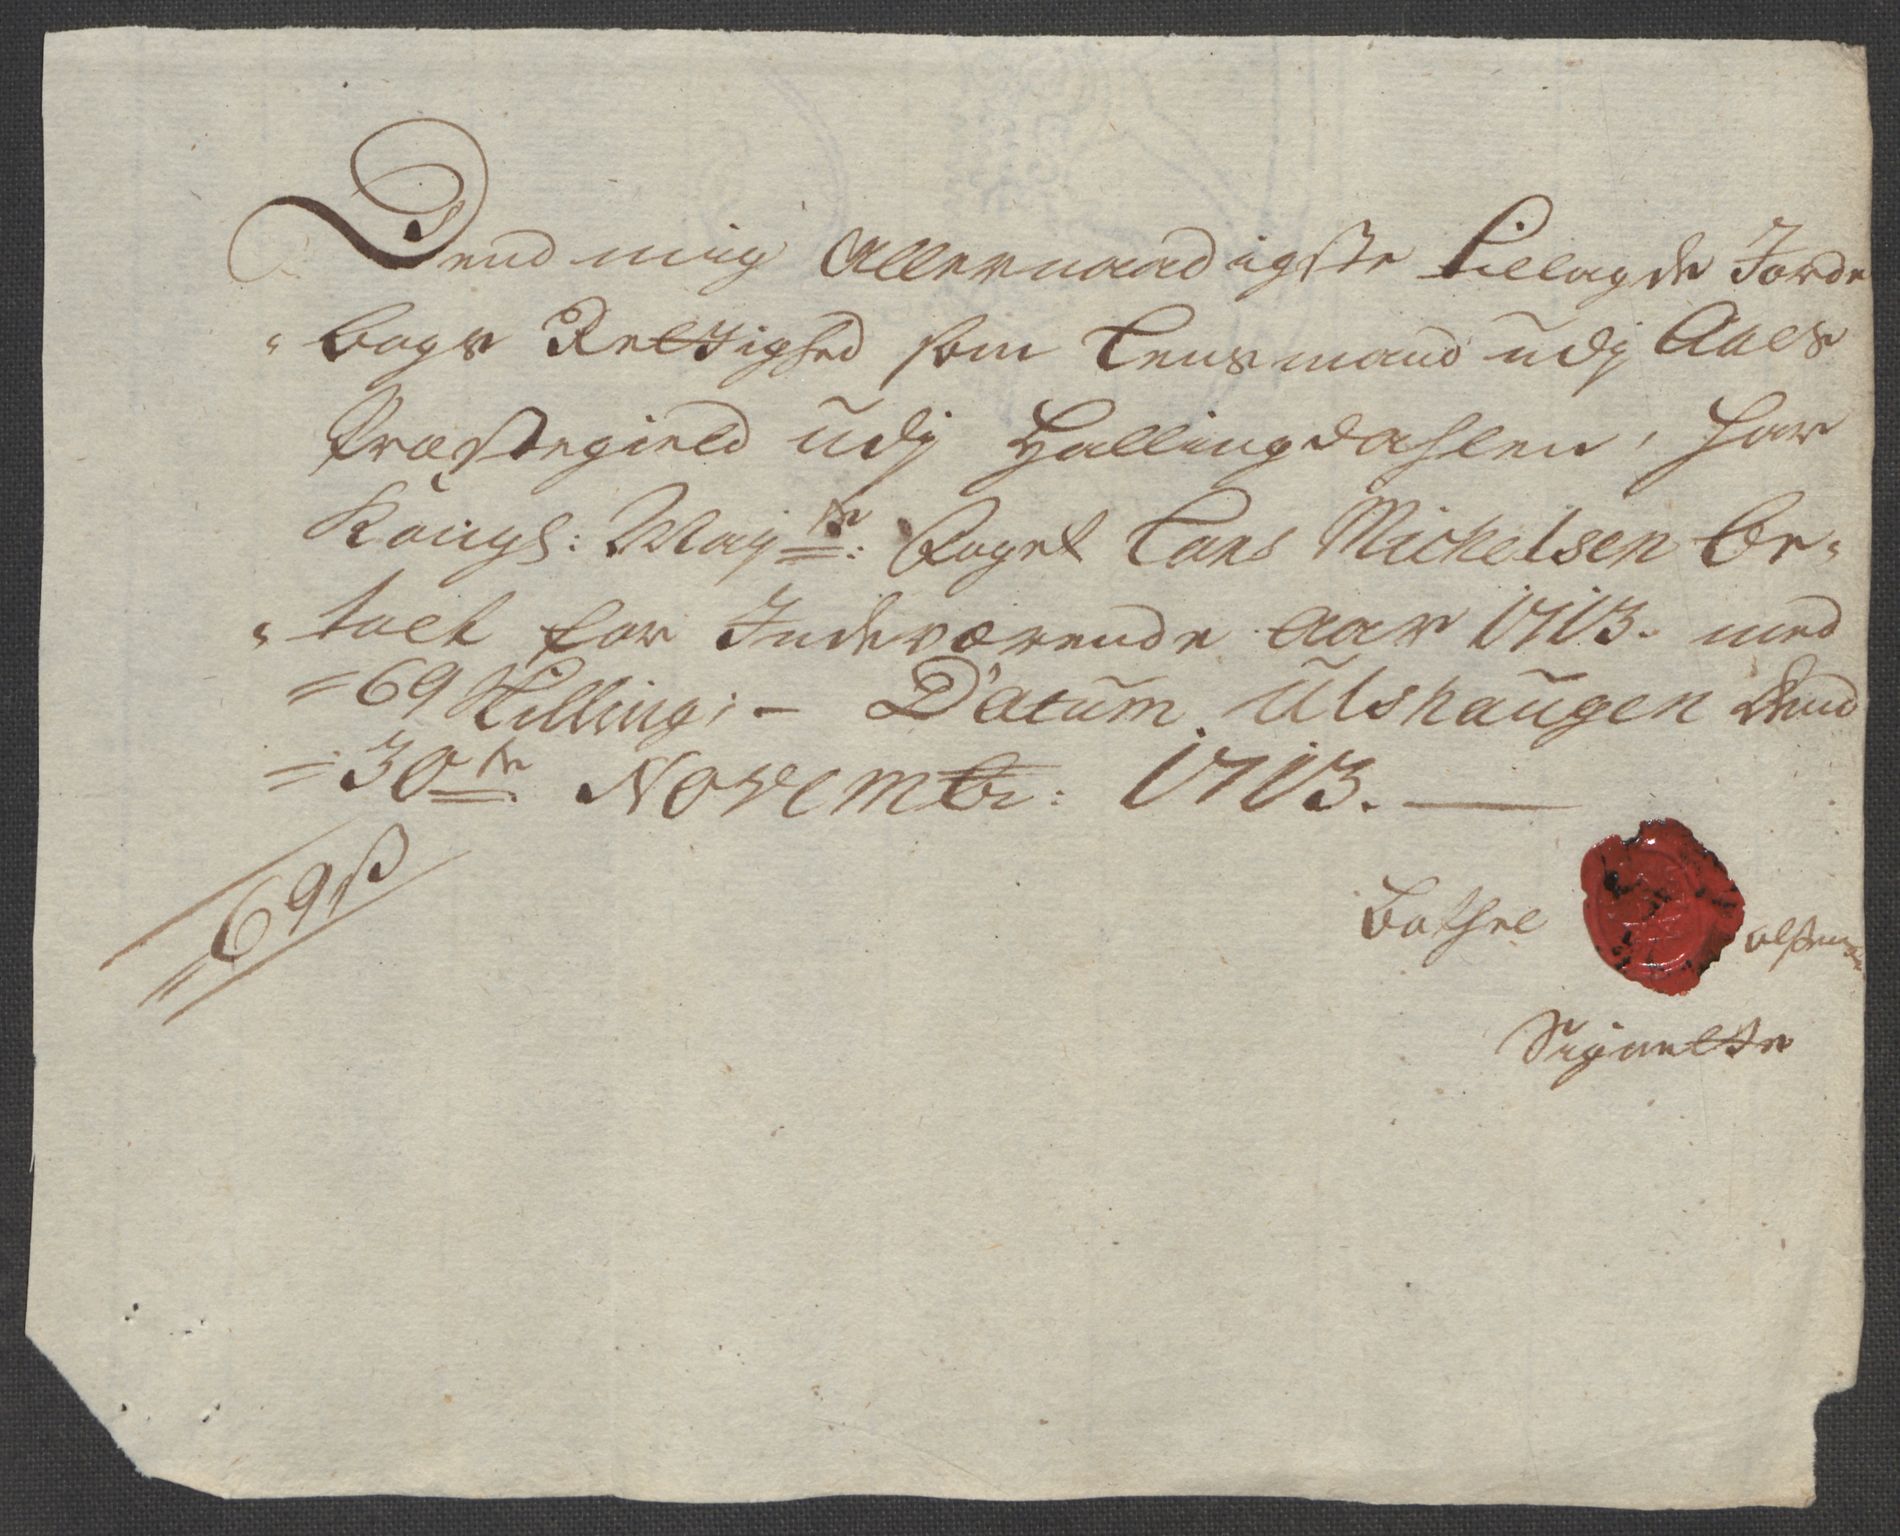 Dend mig Allernaadigste tillagde Jorde
bogs Rettighed som Lensmand udj Aals
Præstegield udj Hallingdahlen, har
Kongl: Maytz: Foget Lars Michelsen be-
talt for Indeværende aar 1713. med
=69 skilling; - Datum Ulshaugen Dend
=30te Novembr: 1713.
69 ß
Bothel olsens
Signette